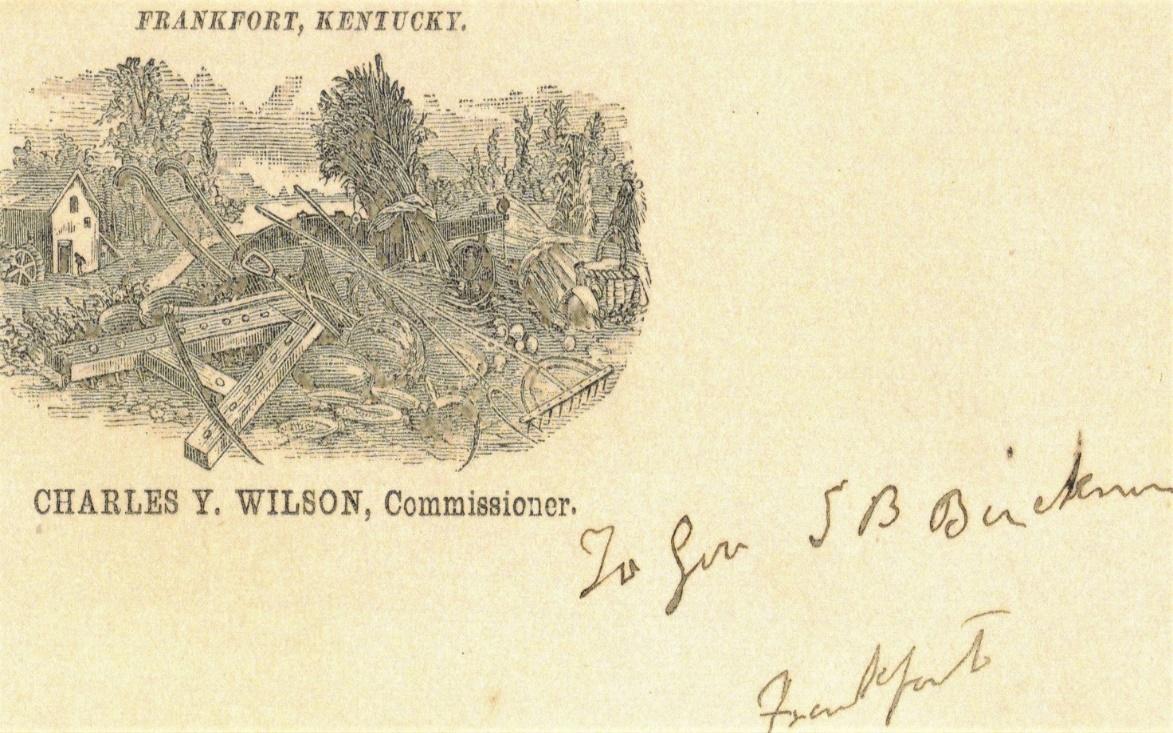 FRANKFORT, KENTUCKY.
CHARLES Y. WILSON, Commissioner.
To Gov S B Buckner
Frankfort